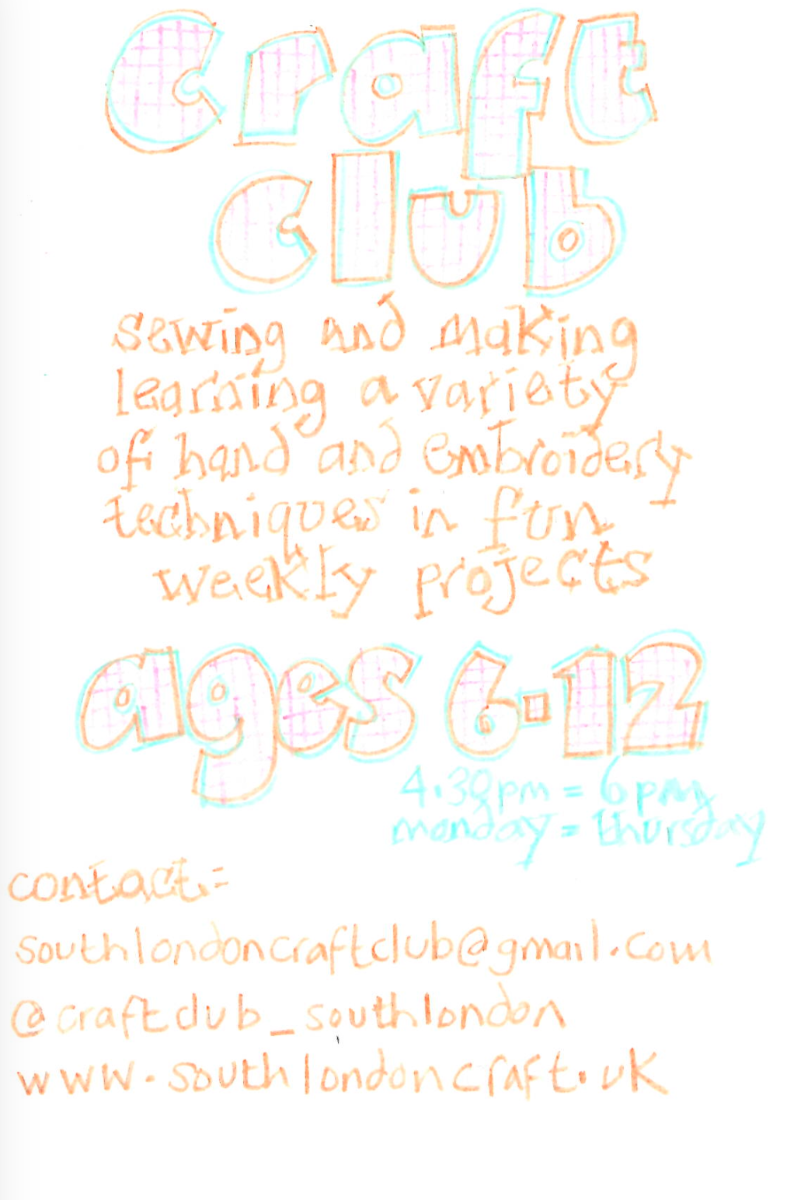 Craft
club
sewing and making
learning a variety
of hand and embroidery
techniques in fun
weekly projects
ages 6-12
4.30pm = 6pm
monday = thursday
contact:
southlondoncraftclub@gmail.com
@craftclub_southlondon
www.southlondoncraft.uk